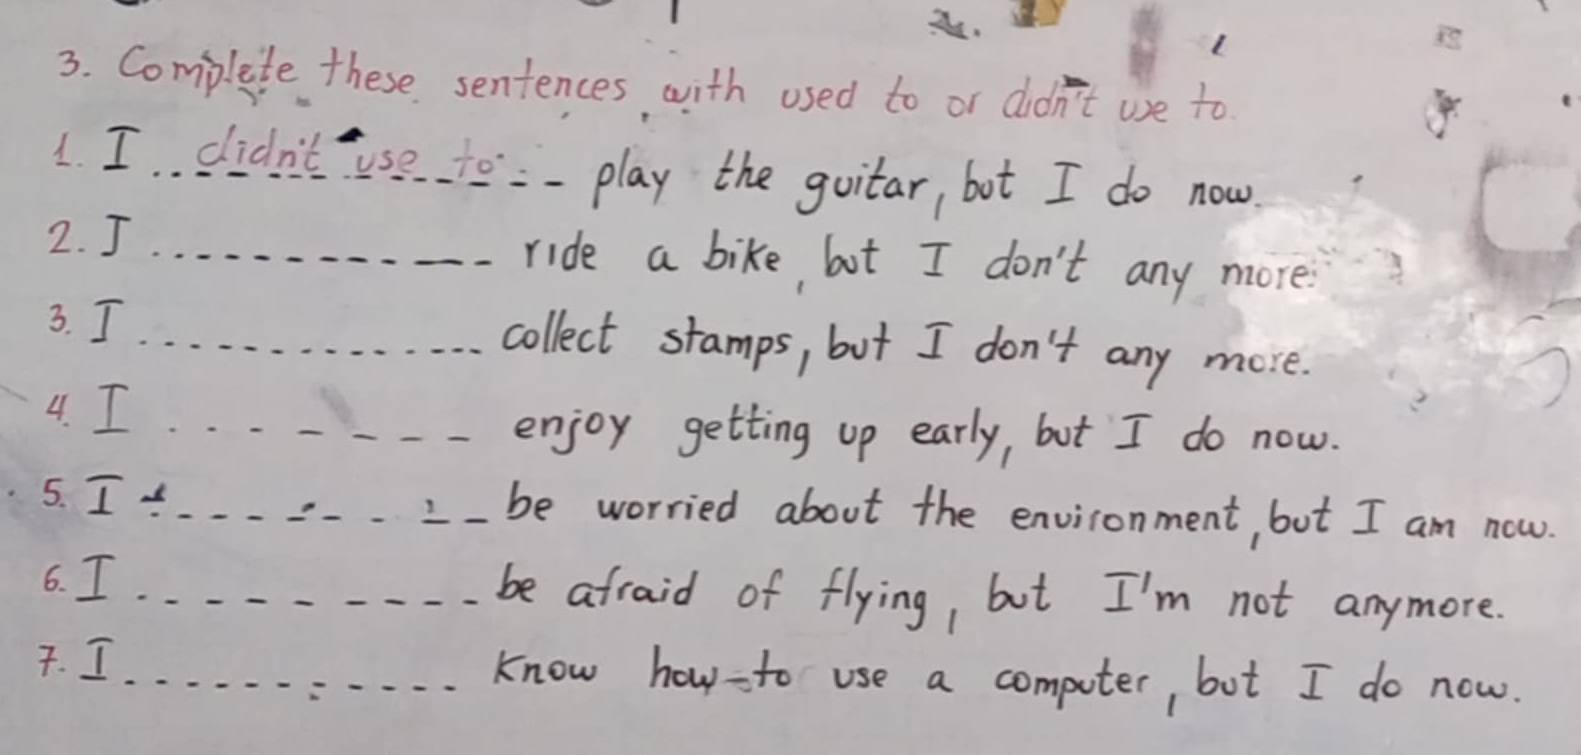 3. Complete these sentences with used to or didn't use to.
1. I ..didn't use to.-- play the guitar, but I do now.
2. I ............ ride a bike, but I don't any more.
3. I .............. collect stamps, but I don't any more.
4. I ........ enjoy getting up early, but I do now.
5. I .......... be worried about the environment, but I am now.
6. I .......... be afraid of flying, but I'm not anymore.
7. I ............ know how to use a computer, but I do now.